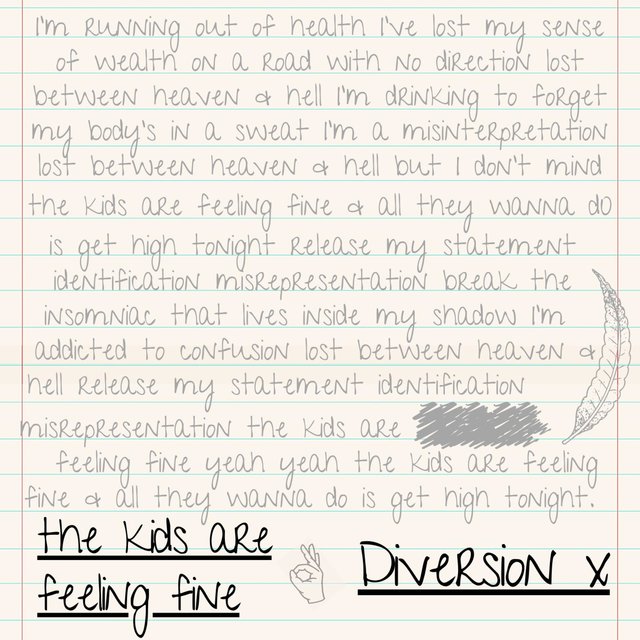 I'm running out of health I've lost my sense
of wealth on a road with no direction lost
between heaven & hell I'm drinking to forget
my body's in a sweat I'm a misinterpretation
lost between heaven & hell but I don't mind
the kids are feeling fine & all they wanna do
is get high tonight release my statement
identification misrepresentation break the
insomniac that lives inside my shadow I'm
addicted to confusion lost between heaven &
hell release my statement identification
misrepresentation the kids are
feeling fine yeah yeah the kids are feeling
fine & all they wanna do is get high tonight.
the kids are
feeling fine
Diversion x